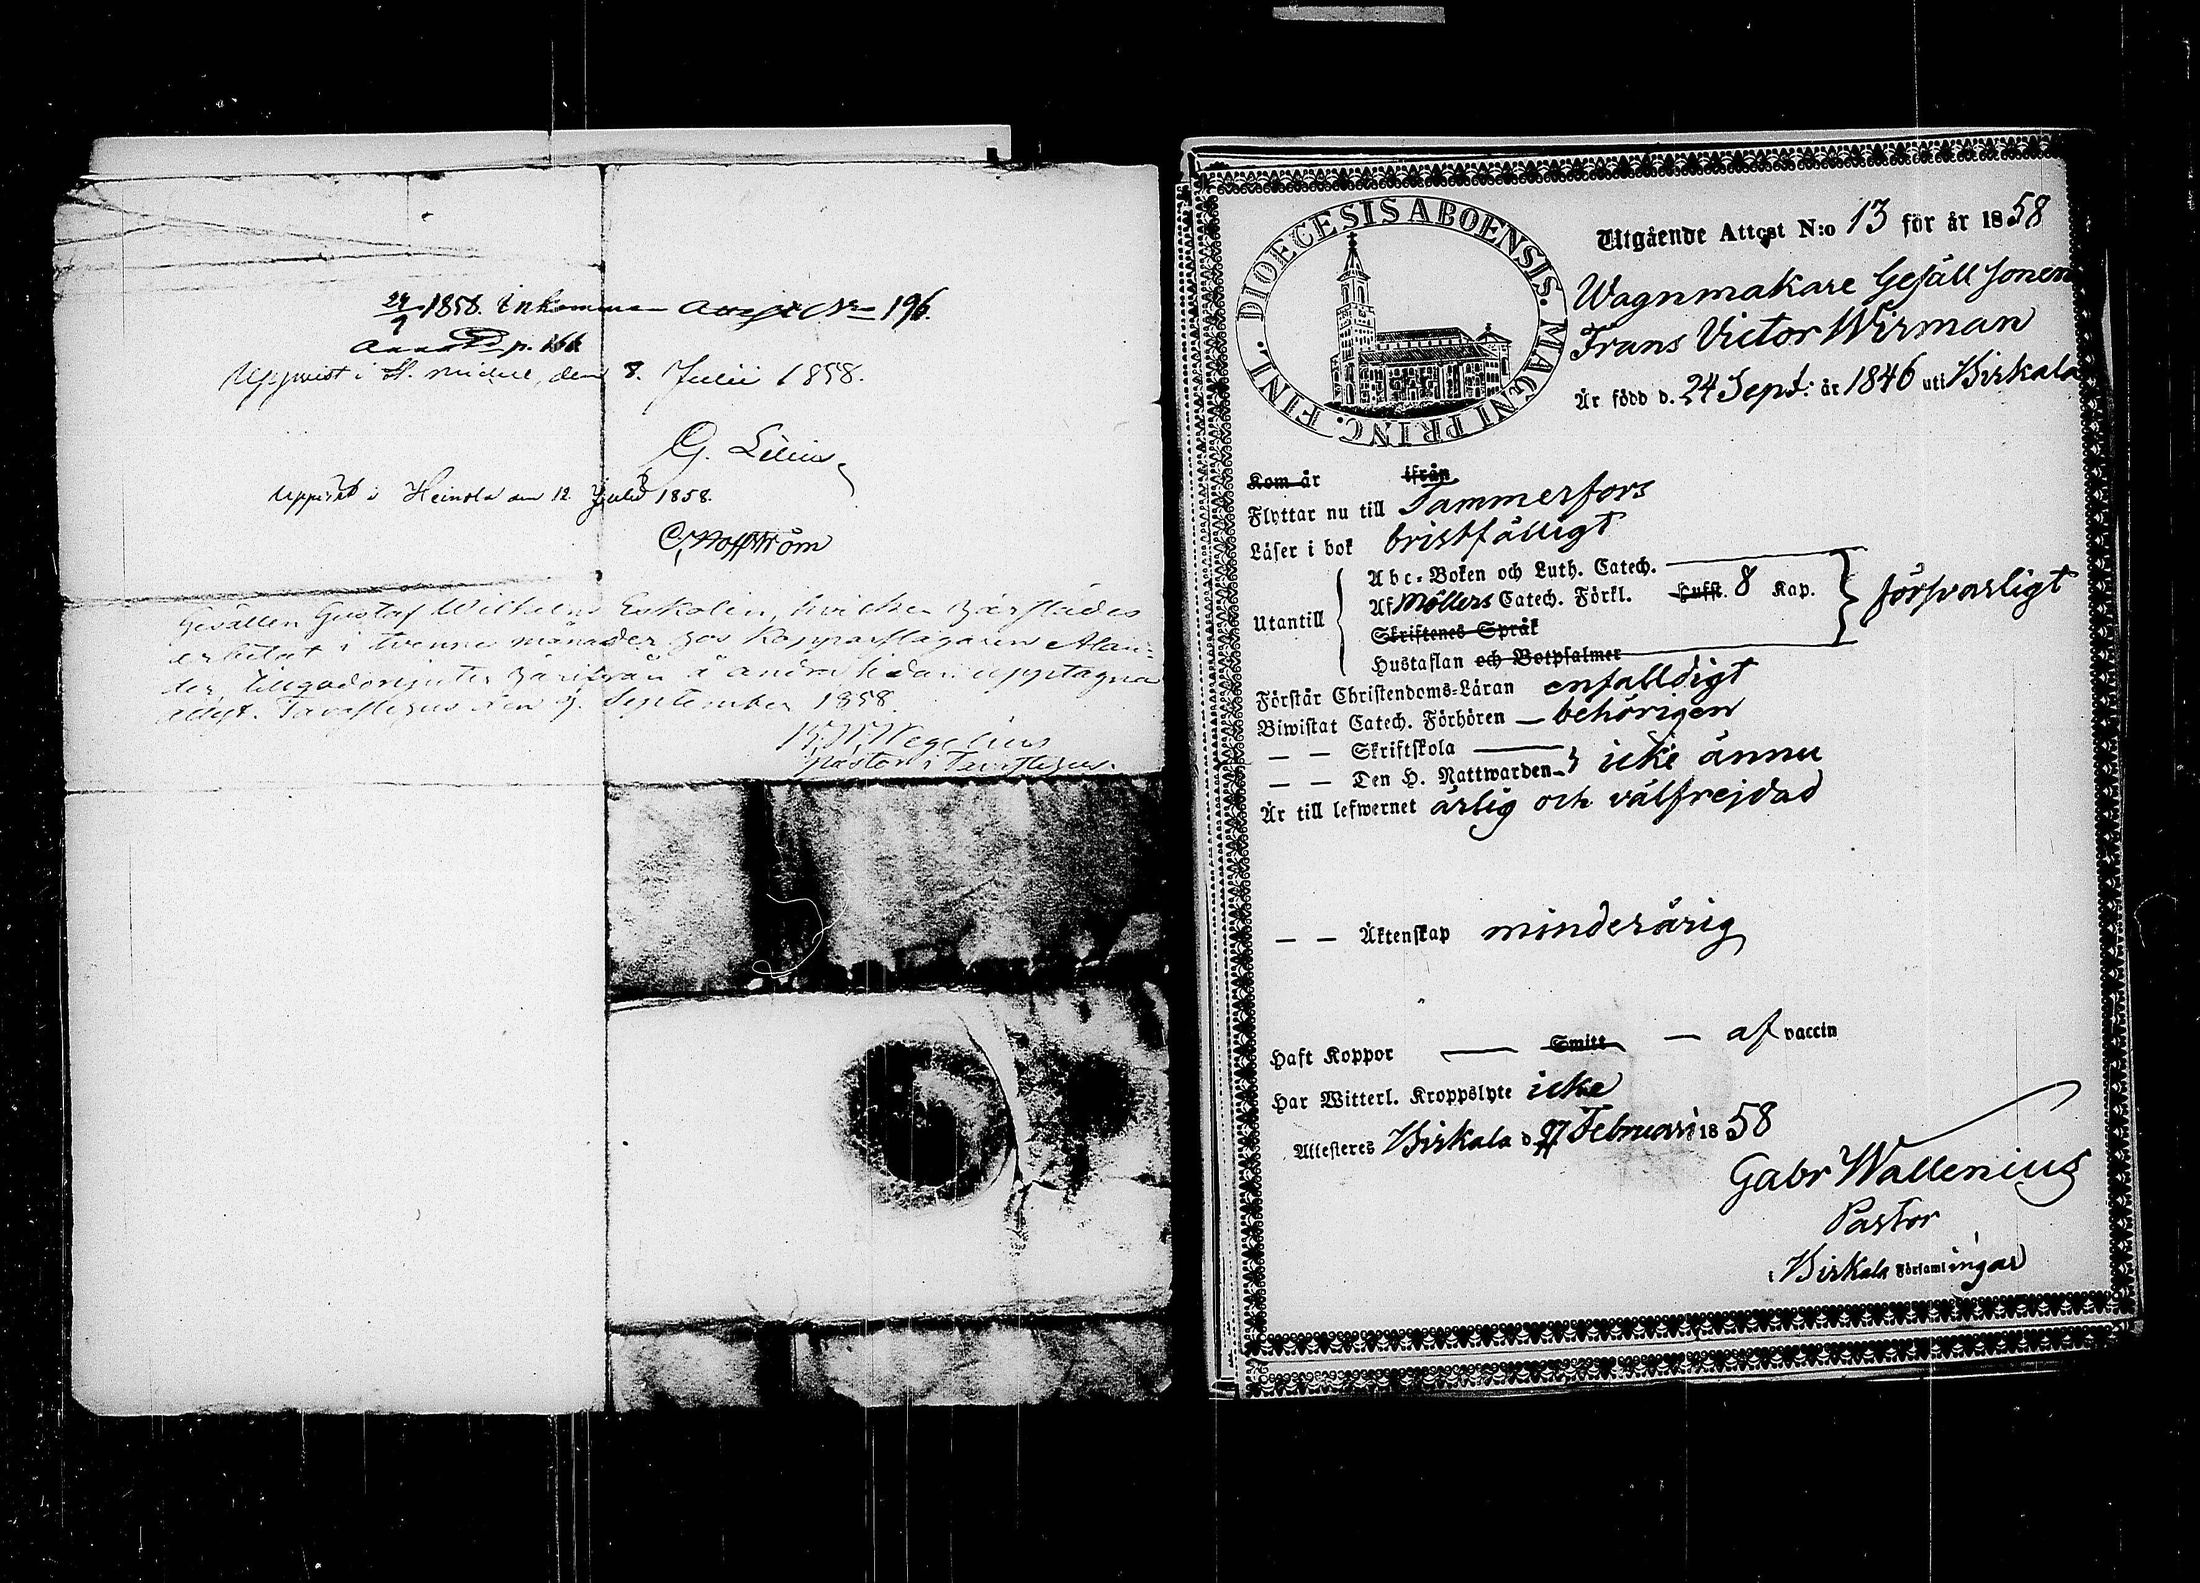 24/9 1858. Inkommen Attest No 196.
p. 166
Uppwist i St. Michel, den 8. Julii 1858.
G.
Uppvist i Heinola den 12 Julii 1858.
Gesällen Gustaf Wilhelm Eskolin, hvilken härstädes
arbetat i tvenne månader hos Kopparslagaren Alan-
der, tillgodonjuter härifrån å andra sidan upptagna
attest. Tavastehus den 9. September 1858.
Pastor i Tavastehus.
DIOECESIS ABOENSIS. MAGNI PRINC. FINL.
Utgående Attest N:o 13 för år 1858
Wagnmakare Gesäll sonen
Frans Victor Wirman
Är född d. 24 Sept: år 1846 uti Birkala
Kom år ifrån
Flyttar nu till Tammerfors
Läser i bok bristfälligt
Utantill
Abc-Boken och Luth. Catech.
Af Möllers Catech. Förkl. Hufst. 8 Kap.
försvarligt
Skriftenes Språk
Hustaflan och Botpsalmer
Förstår Christendoms-Läran enfalldigt
Biwistat Catech. Förhören — behörigen
— — Skriftskola
— — Den H. Nattwarden icke ännu
Är till lefwernet ärlig och välfrejdad
— — Äktenskap minderårig
Haft Koppor — Smitt — af vaccin
Har Witterl. Kroppslyte icke
Attesteres Birkala d. 27 Februari 1858
Gabr Wallenius
Pastor
i Birkala Församlingar